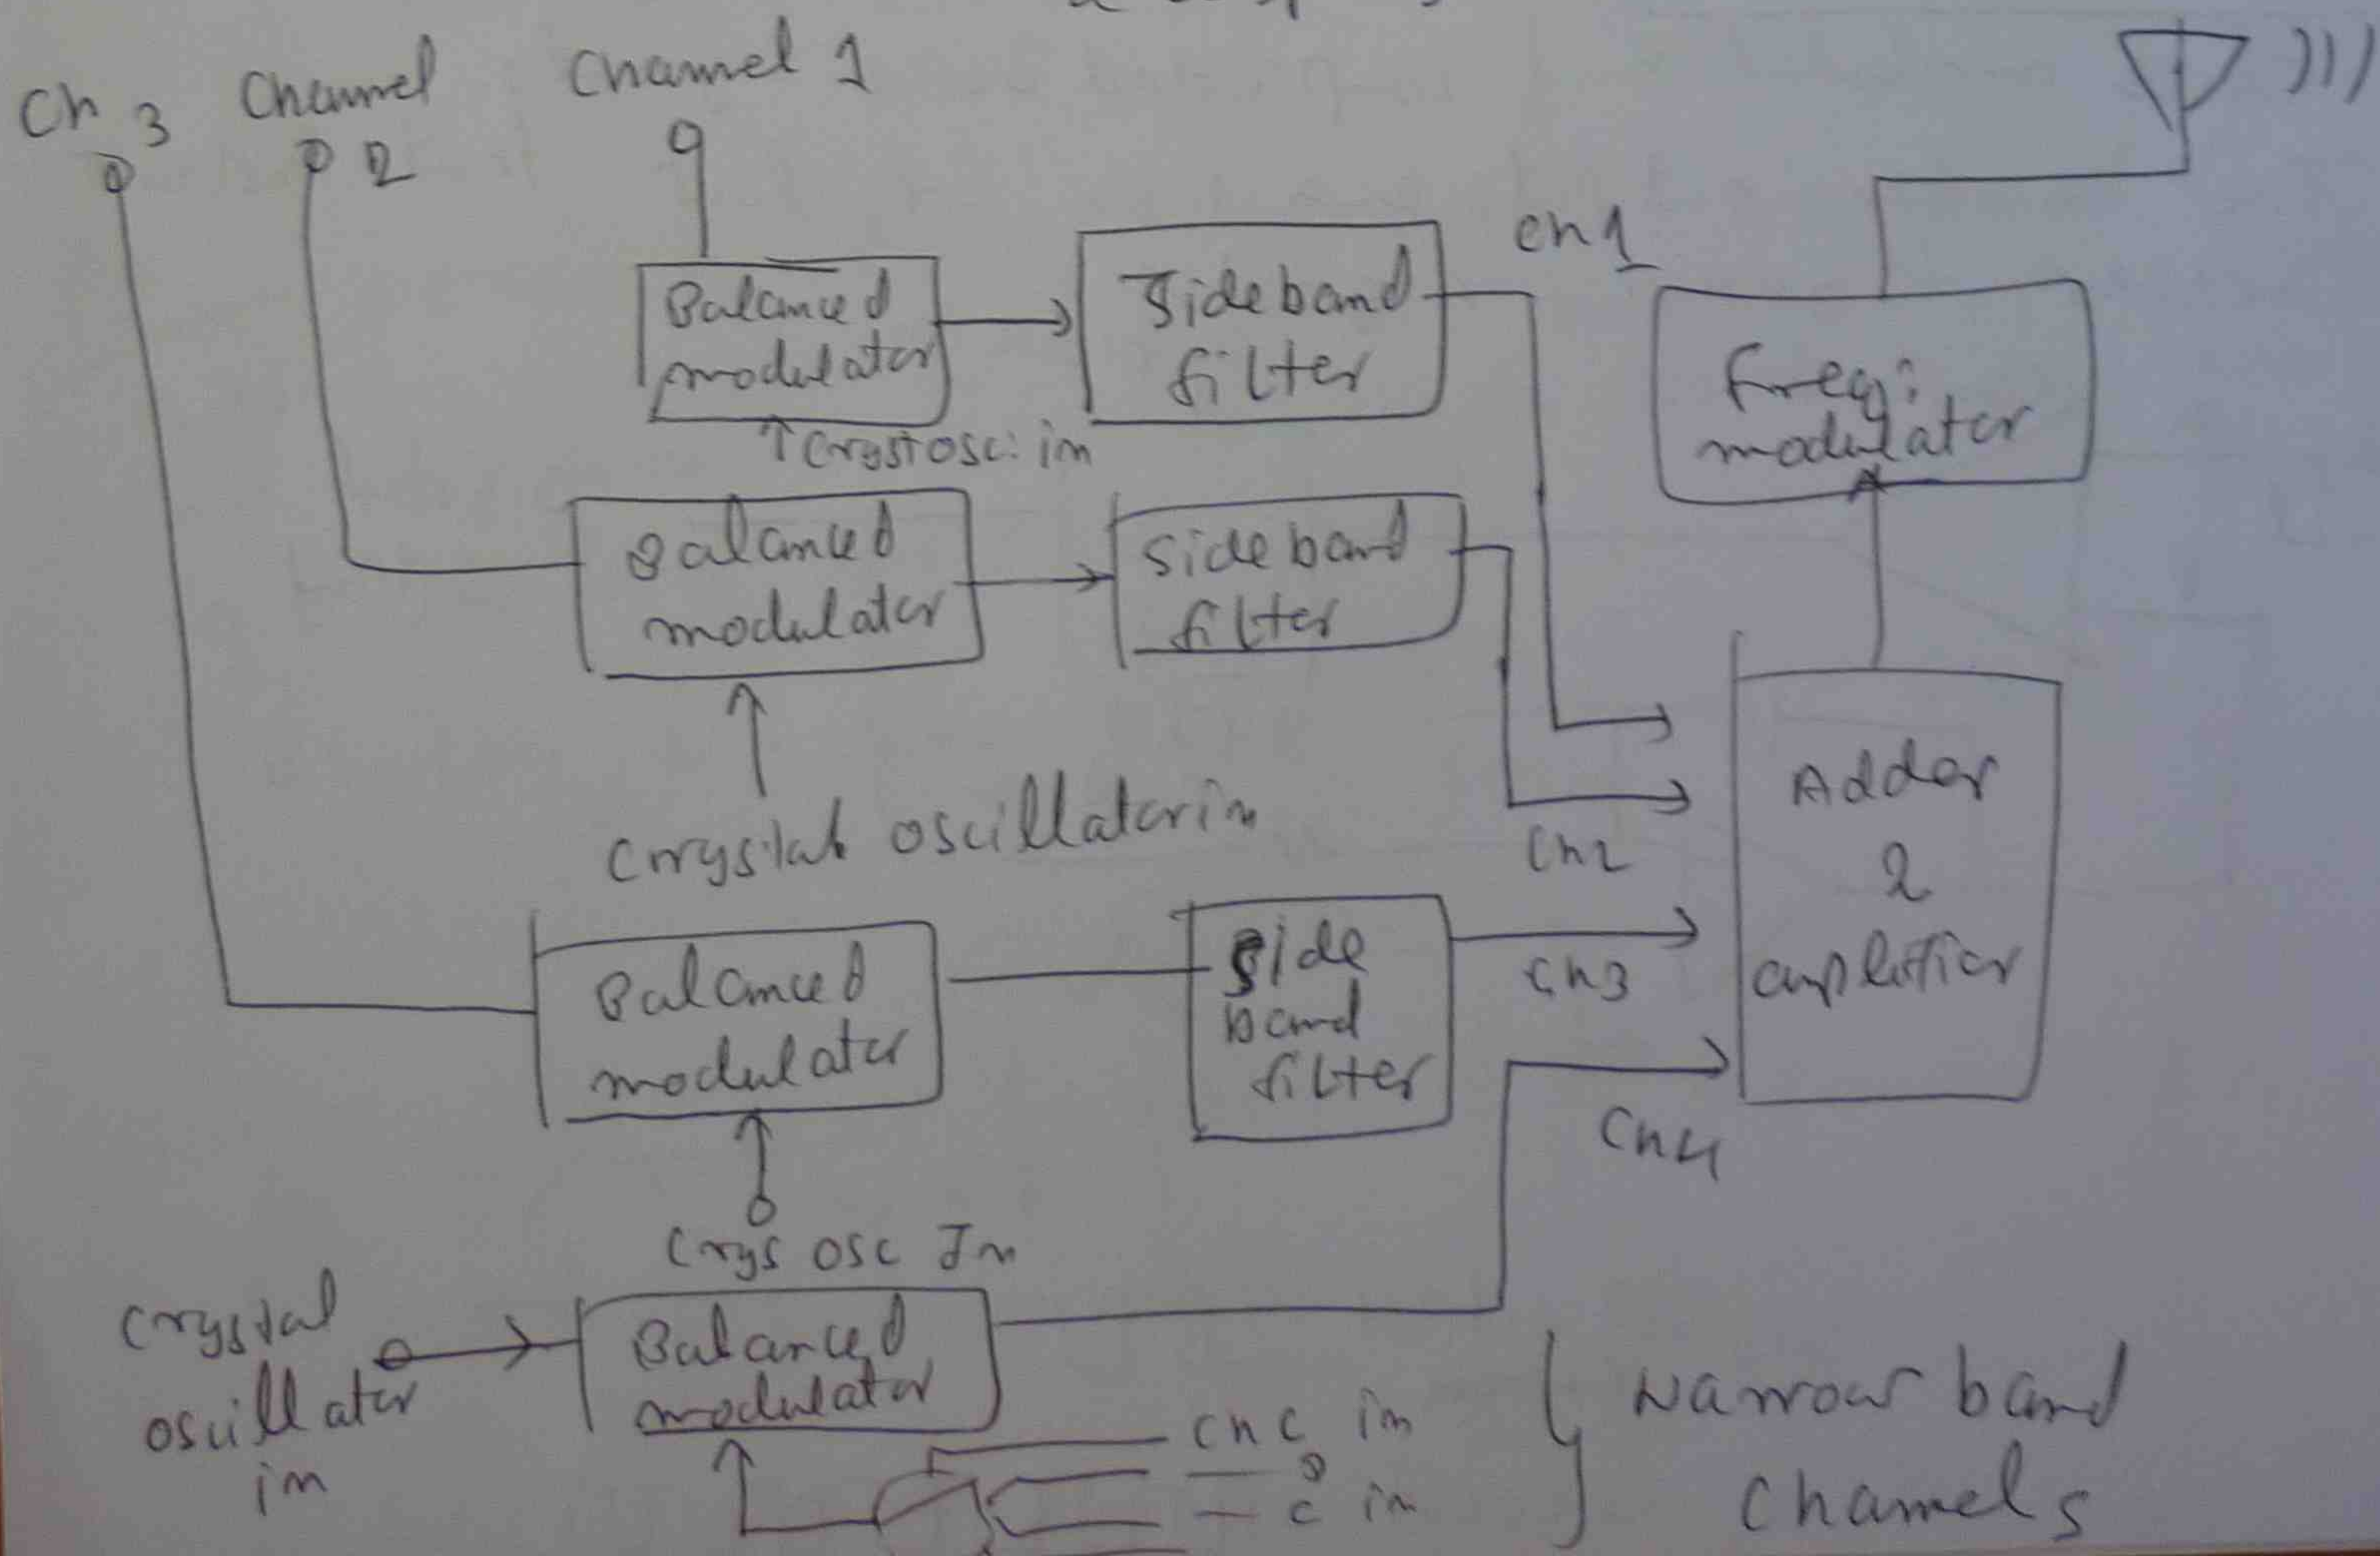 Ch 3
Channel
2
Channel 1
Balanced
modulator
Sideband
filter
ch1
Freq:
modulator
Cryst osc: in
Balanced
modulator
sideband
filter
Crystal oscillator in
Adder
&
amplifier
Ch2
Balanced
modulator
Side
band
filter
Ch3
Ch4
Crys osc In
Crystal
oscillator
in
Balanced
modulator
in
in
Narrow band
Channels